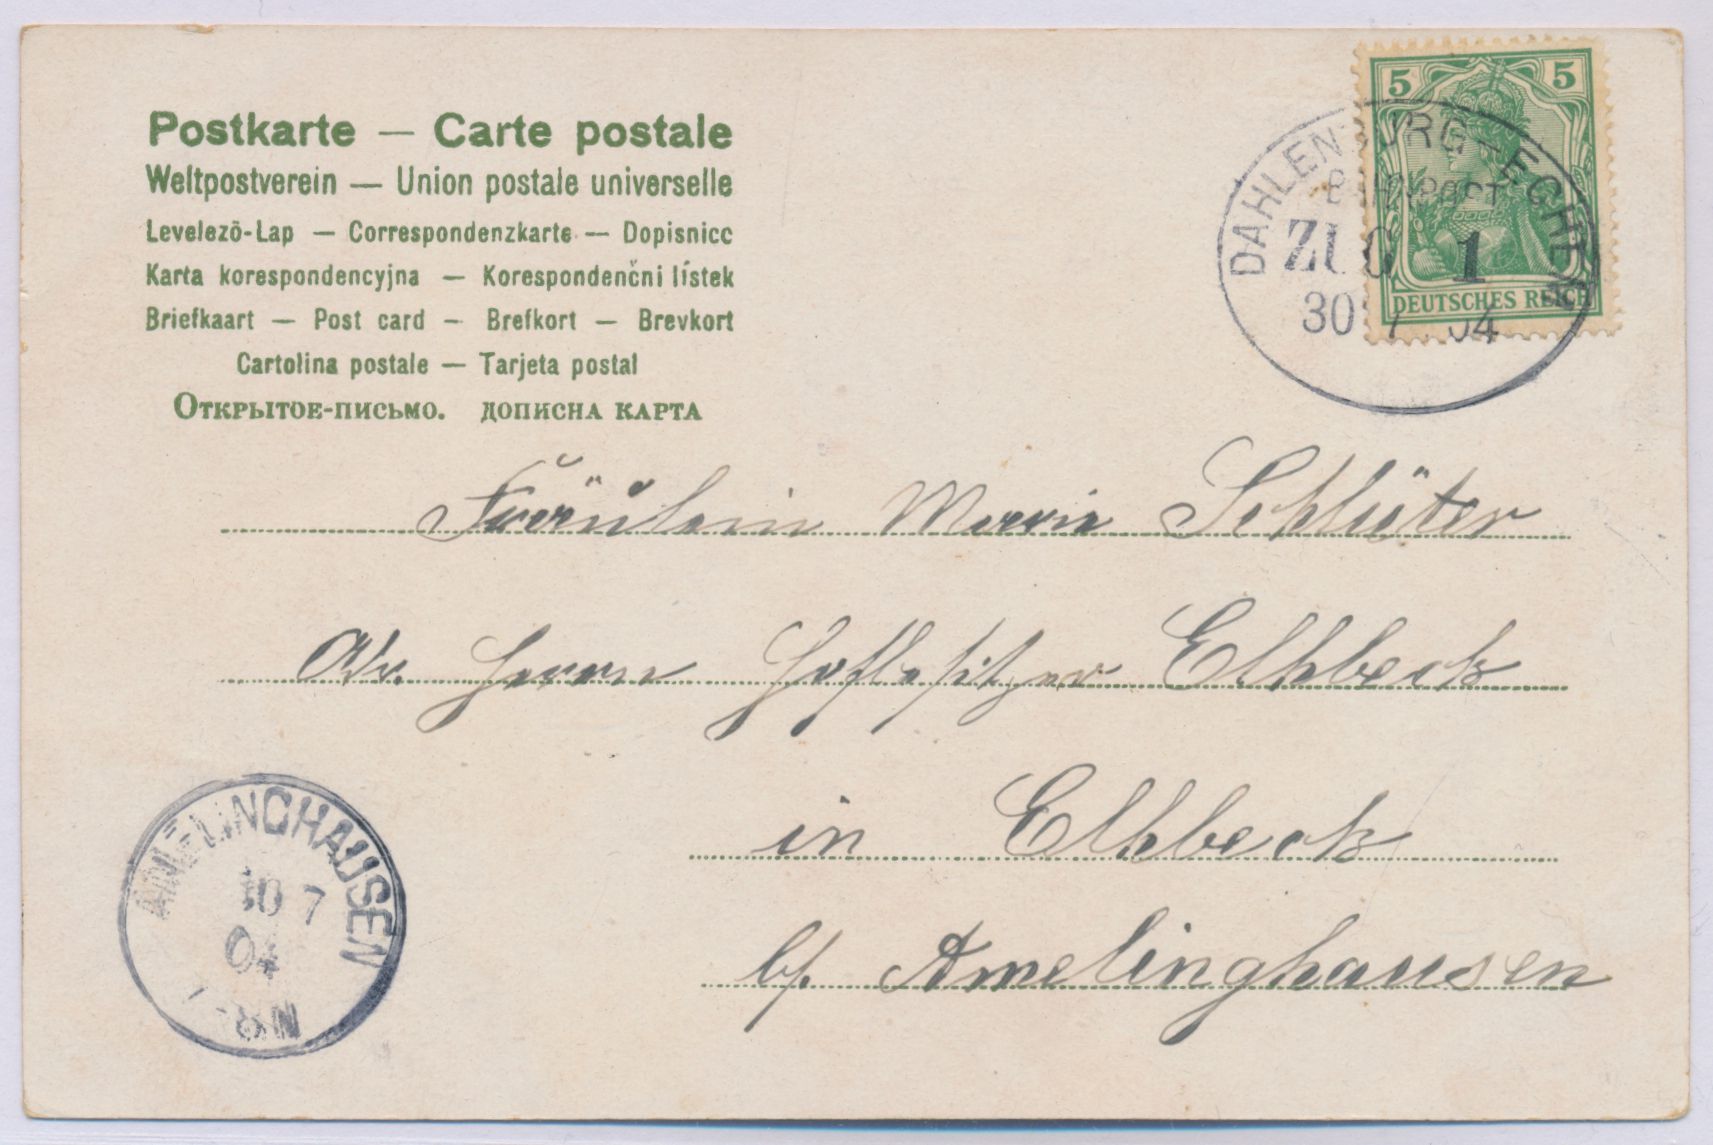 Postkarte — Carte postale
Weltpostverein — Union postale universelle
Levelezō-Lap — Correspondenzkarte — Dopisnicc
Karta korespondencyjna — Korespondenčni lístek
Briefkaart — Post card — Brefkort — Brevkort
Cartolina postale — Tarjeta postal
Открытое-письмо. дописна карта
5 5
DEUTSCHES REICH
DAHLENBURG-ECHEM
BAHNPOST
ZUG 1
30 7 04
Fräulein Marie Schlüter
Adr. Herrn Hofbesitzer Ehlbeck
in Ehlbeck
b/. Amelinghausen
AMELINGHAUSEN
30 7
04
7-8N